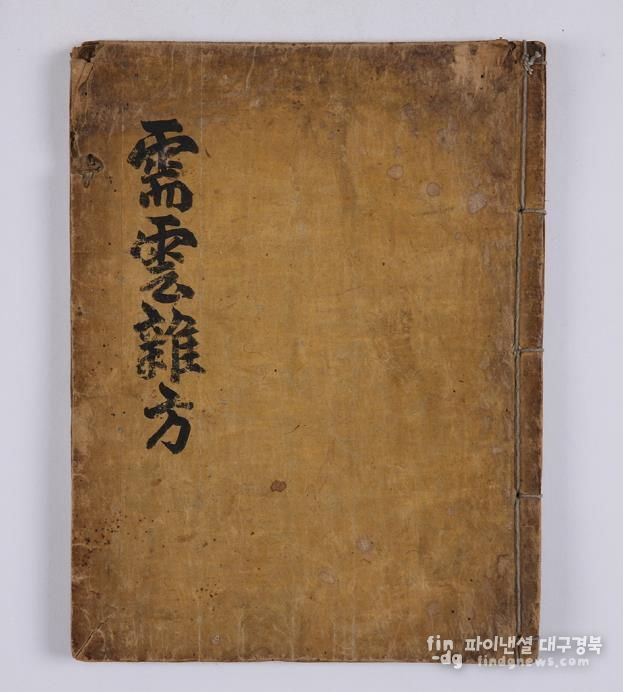 需雲雜方
fin 파이낸셜 대구경북
-dg findgnews.com